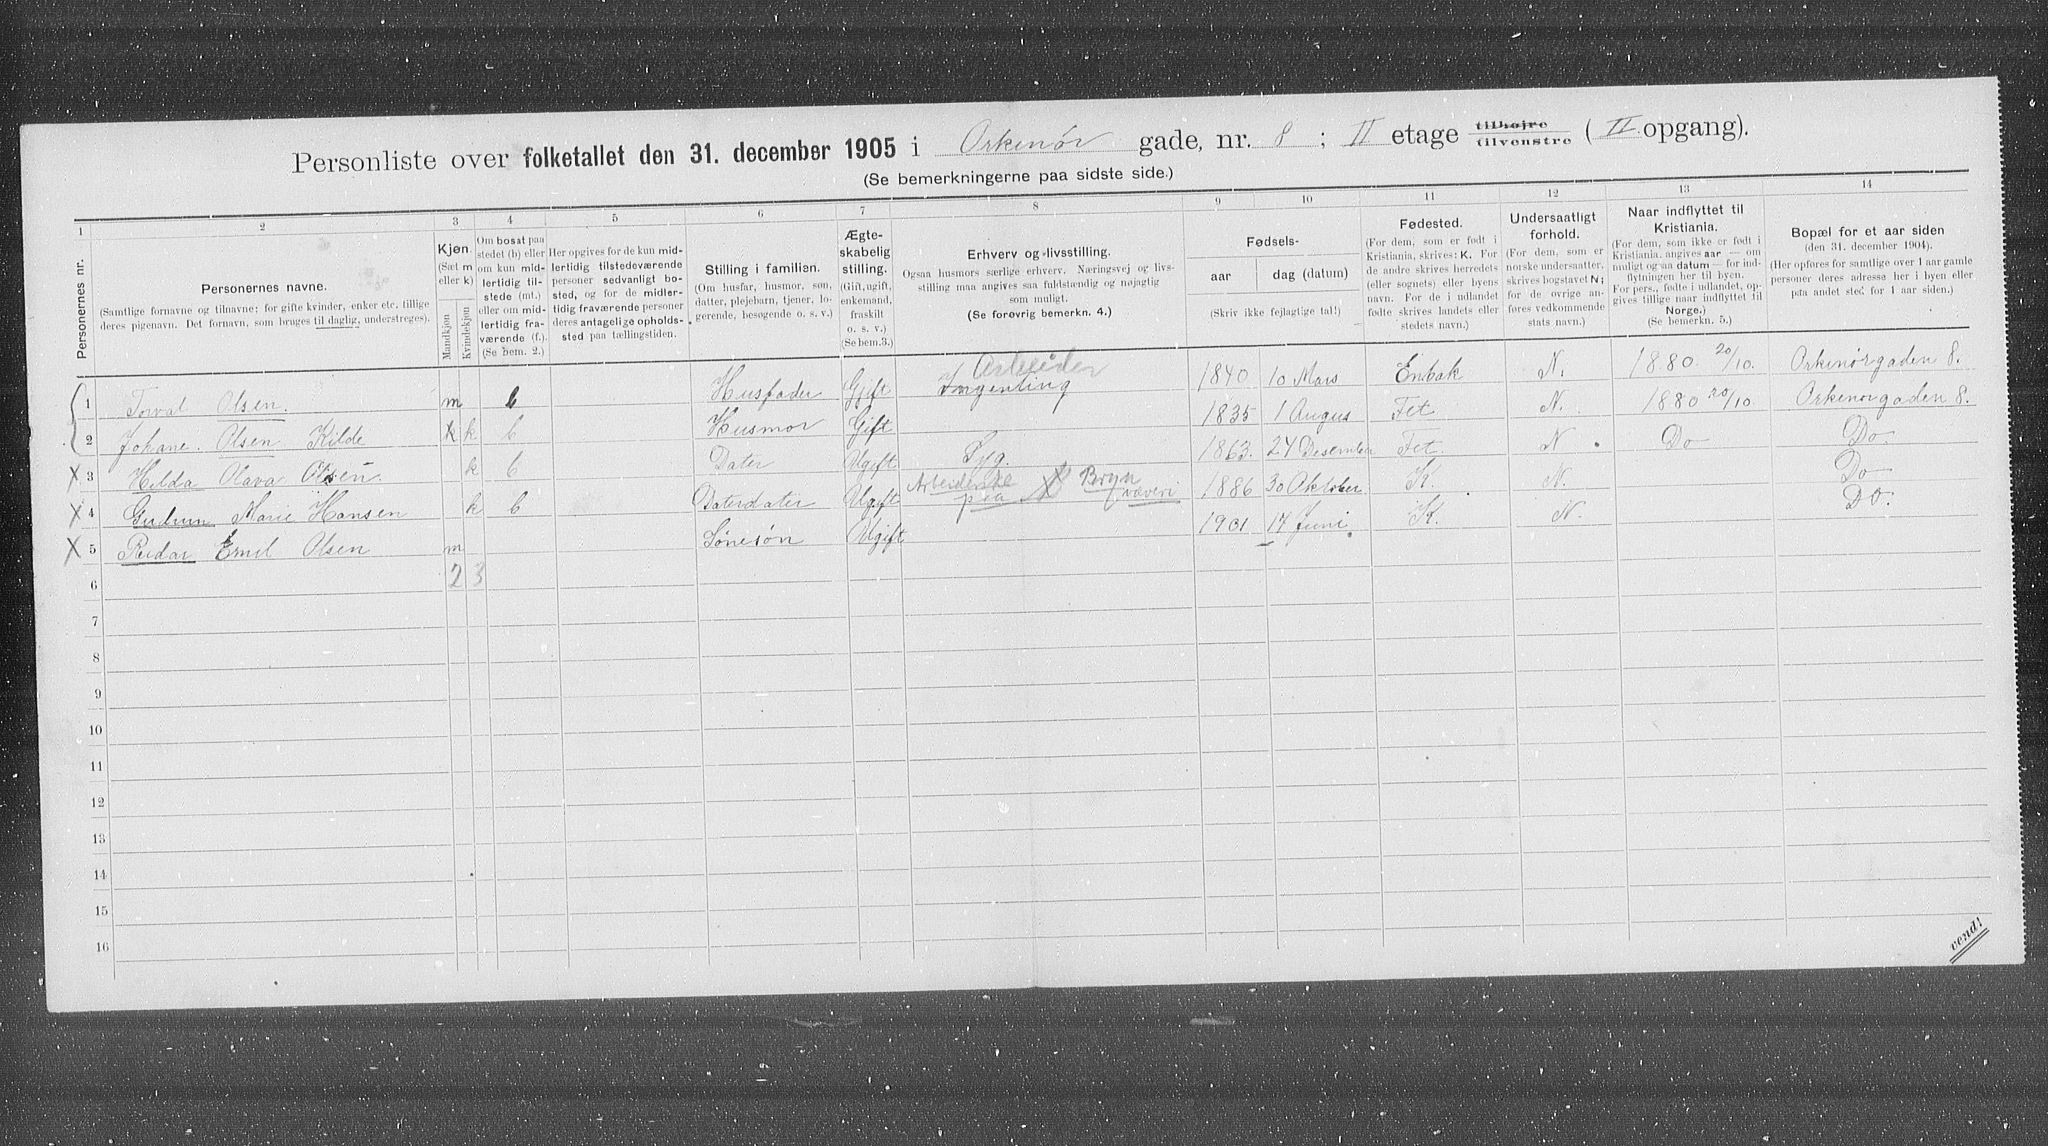 Personliste over folketallet den 31. december 1905 i Orkenør gade, nr. 8 ; II etage tilhøire / tilvenstre ( II opgang).
(Se bemerkningerne paa sidste side.)
1 2 3 4 5 6 7 8 9 10 11 12 13 14
Personernes nr.
Personernes navne.
(Samtlige fornavne og tilnavne; for gifte kvinder, enker etc. tillige
deres pigenavn. Det fornavn, som bruges til daglig, understreges).
Kjøn.
(Sæt m
eller k)
Mandkjøn
Kvindekjøn
Om bosat paa
stedet (b) eller
om kun mid-
lertidig til-
stede (mt.)
eller om mid-
lertidig fra-
værende (f.).
(Se bem. 2.)
Her opgives for de kun mid-
lertidig tilstedeværende
personer sedvanligt bo-
sted, og for de midler-
tidig fraværende personer
deres antagelige opholds-
sted paa tællingstiden.
Stilling i familien.
(Om husfar, husmor, søn,
datter, plejebarn, tjener, lo-
gerende, besøgende o. s. v.)
Ægte-
skabelig
stilling.
(Gift, ugift,
enkemand,
fraskilt
o. s. v.)
(Se bem. 3.)
Erhverv og livsstilling.
Ogsaa husmors særlige erhverv. Næringsvej og livs-
stilling maa angives saa fuldstændig og nøjagtig
som muligt.
(Se forøvrig bemerkn. 4.)
Fødsels-
aar
dag (datum)
(Skriv ikke fejlagtige tal!)
Fødested.
(For dem, som er født i
Kristiania, skrives: K. For
de andre skrives herredets
(eller sognets) eller byens
navn. For de i udlandet
fødte skrives landets eller
stedets navn.)
Undersaatligt
forhold.
(For dem, som er
norske undersaatter,
skrives bogstavet N;
for de øvrige an-
føres vedkommende
stats navn.)
Naar indflyttet til
Kristiania.
(For dem, som ikke er født i
Kristiania, angives aar — om
muligt og aa datum — for ind-
flytningen her til byen.
For pers., fødte i udlandet, op-
gives tillige naar indflyttet til
Norge.)
(Se bemerkn. 5.)
Bopæl for et aar siden
(den 31. december 1904).
(Her opføres for samtlige over 1 aar gamle
personer deres adresse her i byen eller
paa andet sted for 1 aar siden.)
1 Torval Olsen. m b Husfader Gift Arbeider Ingenting 1840 10 Mars Enbak N. 1880 20/10. Orkenørgaden 8.
2 Johane. Olsen Kilde k k b Husmor Gift 1835 1 Augus Fet N. 1880 20/10 Orkenorgaden 8.
X 3 Helda Olava Olsen. k b Dater Ugift Syg. 1863. 27 Desember Fet. N. Do Do.
X 4 Gudrun Marie Hansen k b Daterdater Ugift Arbeiderske paa Bryn væveri 1886 30 Oktober K. N. Do
X 5 Reidar Emil Olsen m Sønesøn Ugift 1901 17 Juni. K. N. Do.
6 2 3
7
8
9
10
11
12
13
14
15
16
vend!